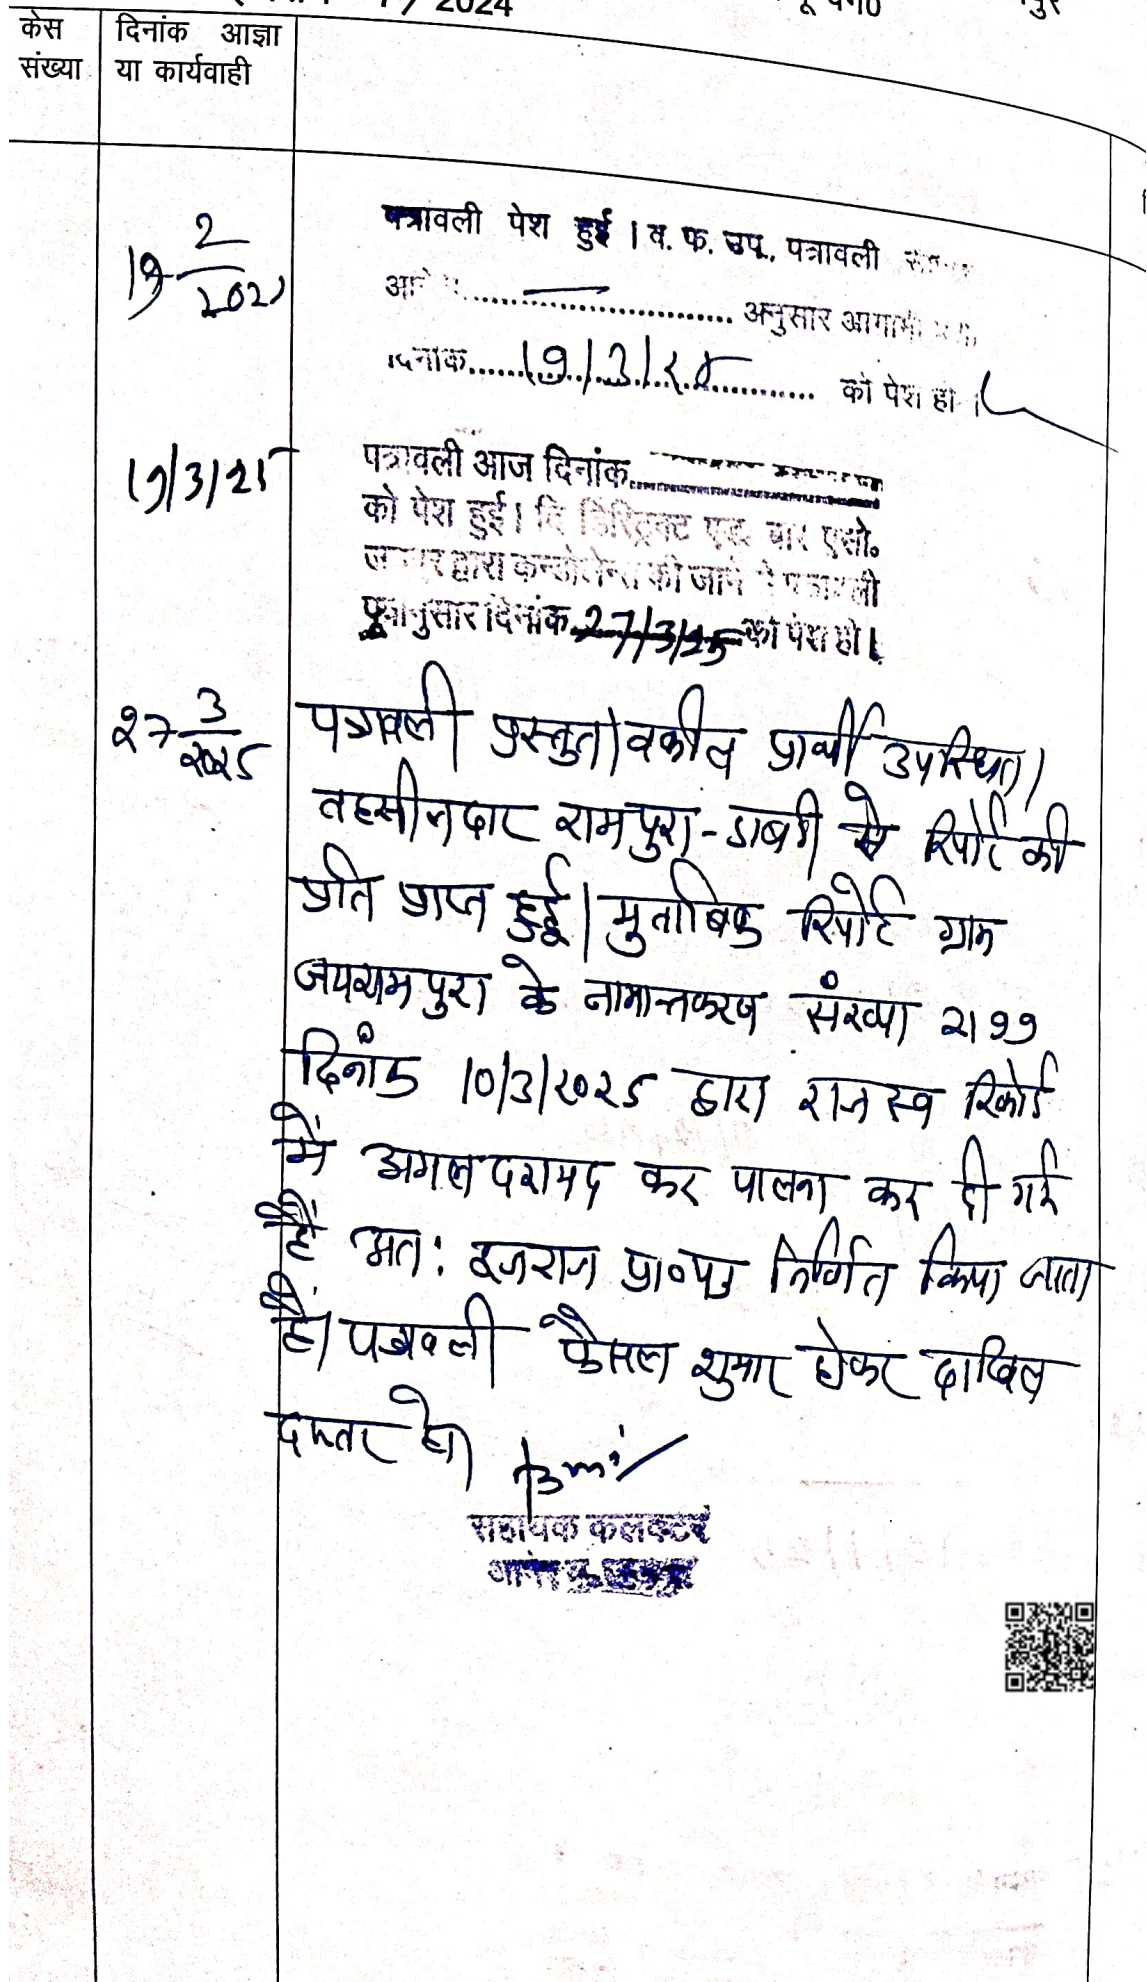 2024
केस
संख्या
दिनांक आज्ञा
या कार्यवाही
पत्रावली पेश हुई । व. फ. उप. पत्रावली
अनुसार आगामी
दिनांक 19/3/25 को पेश हो ।
19/3/25
पत्रावली आज दिनांक
को पेश हुई। दि डिस्ट्रिक्ट एड. बार एसो.
द्वारा कन्डोलेन्स की जाने से पत्रावली
पूर्वानुसार दिनांक 27/3/25 को पेश हो।
27 3/2025
पत्रावली प्रस्तुत। वकील प्रार्थी उपस्थित।
तहसीलदार रामपुरा-डाबडी से रिपोर्ट की
प्रति प्राप्त हुई। मुताबिक रिपोर्ट ग्राम
जयरामपुरा के नामान्तकरण संख्या 2199
दिनांक 10/3/2025 द्वारा राजस्व रिकोर्ड
में अमल दरामद कर पालना कर दी गई
है अत: इजराज प्रा०पत्र निर्णित किया जाता
है। पत्रावली फैसल शुमार होकर दाखिल
दफ्तर हो।
सहायक कलक्टर